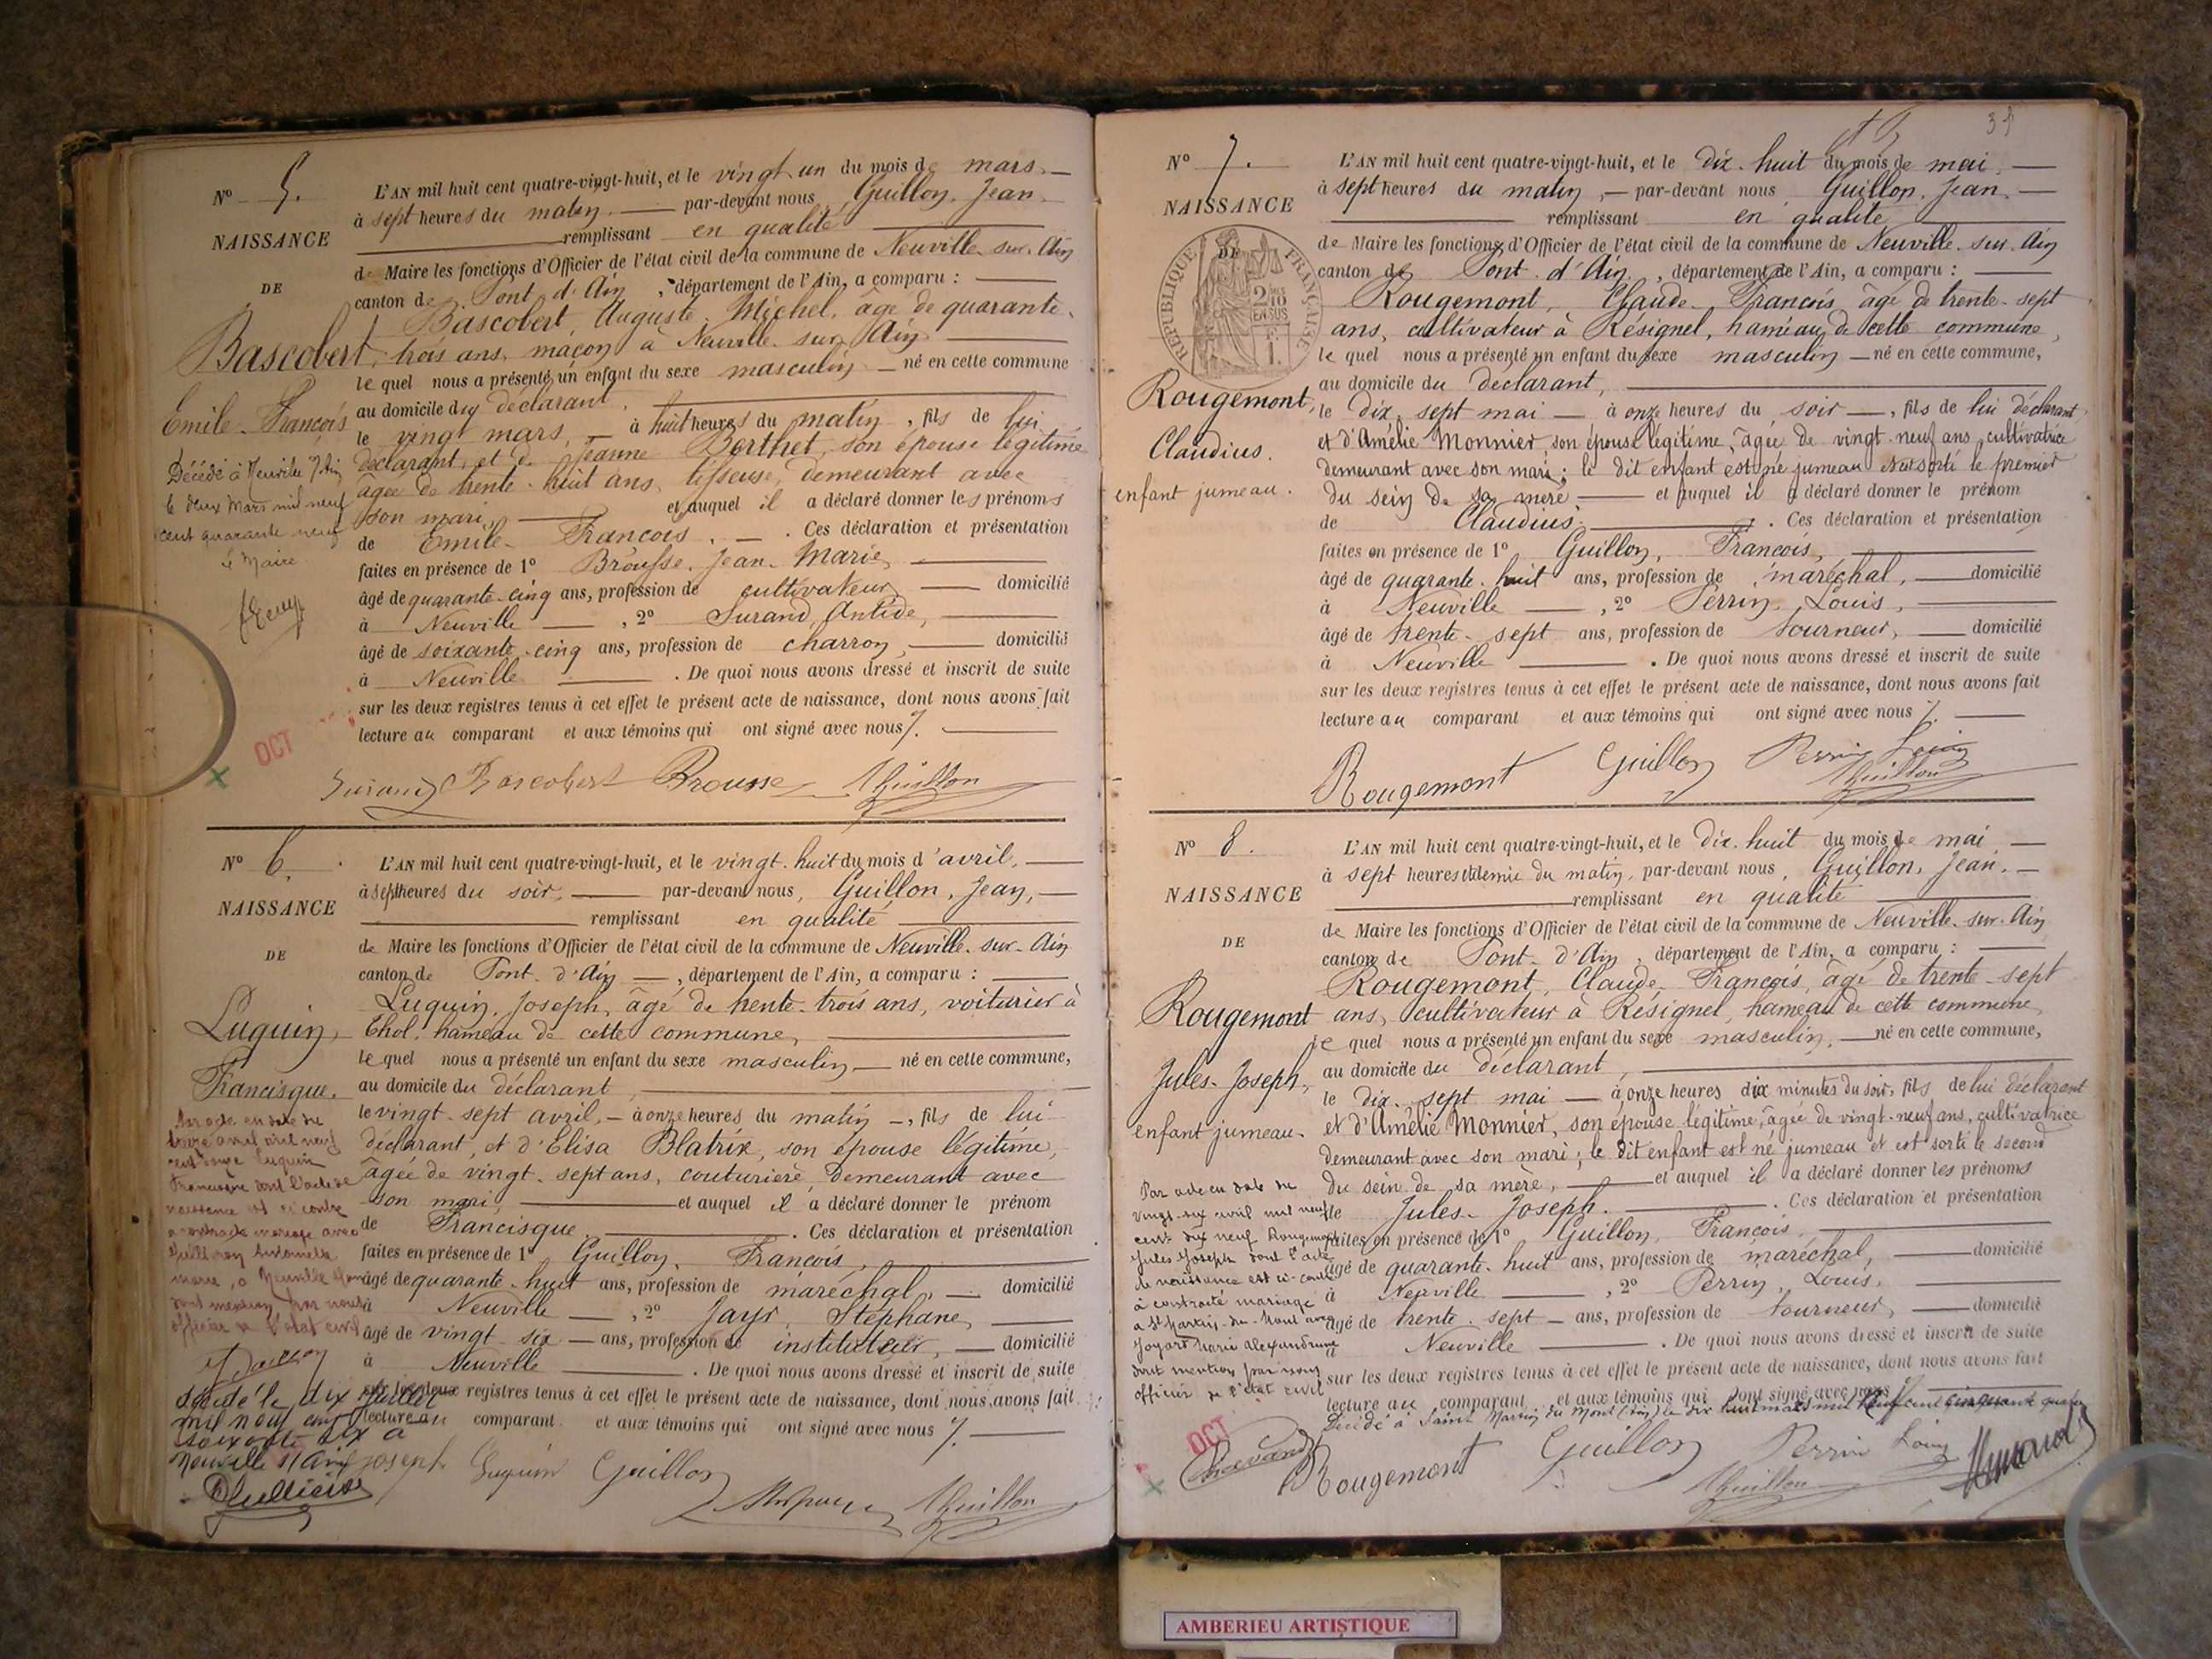 N° 5.
NAISSANCE
DE
Bascobert,
Emile-François
Décédé à Neuville s/Ain
le deux Mars mil neuf
cent quarante neuf
Le Maire
L'AN mil huit cent quatre-vingt-huit, et le vingt un du mois de mars. —
à sept heures du matin. — par-devant nous, Guillon, Jean.
remplissant en qualité
de Maire les fonctions d'Officier de l'état civil de la commune de Neuville-sur-Ain
canton de Pont-d'Ain, département de l'Ain, a comparu :
Bascobert, Auguste-Michel, âgé de quarante-
trois ans, maçon à Neuville-sur-Ain
lequel nous a présenté un enfant du sexe masculin — né en cette commune
au domicile du déclarant,
le vingt mars, — à huit heures du matin, fils de lui
déclarant, et de Jeanne Berthet, son épouse légitime
âgée de trente-huit ans, tisseuse, demeurant avec
son mari, — et auquel il a déclaré donner les prénoms
de Emile-François. — . Ces déclaration et présentation
faites en présence de 1° Brousse, Jean-Marie,
âgé de quarante-cinq ans, profession de cultivateur — domicilié
à Neuville — , 2° Surand, Antide,
âgé de soixante-cinq ans, profession de charron, — domicilié
à Neuville — . De quoi nous avons dressé et inscrit de suite
sur les deux registres tenus à cet effet le présent acte de naissance, dont nous avons fait
lecture au comparant et aux témoins qui ont signé avec nous %.
OCT
Surand Bascobert Brousse JGuillon
N° 6.
NAISSANCE
DE
Luquin,
Francisque.
Par acte en date du
treize avril mil neuf
cent douze Luquin
Francisque dont l'acte de
naissance est ci contre
a contracté mariage avec
Antoinette
marie, à Neuville
dont mention par nous
officier de l'état civil
décédé le dix Juillet
mil neuf cent
soixante dix à
Neuville s/Ain
L'AN mil huit cent quatre-vingt-huit, et le vingt-huit du mois d'avril, —
à sept heures du soir, — par-devant nous, Guillon, Jean, —
remplissant en qualité
de Maire les fonctions d'Officier de l'état civil de la commune de Neuville-sur-Ain
canton de Pont-d'Ain —, département de l'Ain, a comparu :
Luquin, Joseph, âgé de trente-trois ans, voiturier à
Thol, hameau de cette commune,
lequel nous a présenté un enfant du sexe masculin — né en cette commune,
au domicile du déclarant,
le vingt-sept avril, — à onze heures du matin —, fils de lui
déclarant, et d'Elisa Blatrix, son épouse légitime,
âgée de vingt-sept ans, couturière, demeurant avec
son mari, — et auquel il a déclaré donner le prénom
de Francisque. — . Ces déclaration et présentation
faites en présence de 1° Guillon, François,
âgé de quarante-huit ans, profession de maréchal, — domicilié
à Neuville — , 2° Jayr, Stéphane,
âgé de vingt-six — ans, profession de instituteur, — domicilié
à Neuville — . De quoi nous avons dressé et inscrit de suite
sur les deux registres tenus à cet effet le présent acte de naissance, dont nous avons fait
lecture au comparant et aux témoins qui ont signé avec nous %.
joseph Luquin Guillon JGuillon
N° 7.
NAISSANCE
DE
RÉPUBLIQUE FRANÇAISE
2/10 EN SUS
Rougemont,
Claudius.
enfant jumeau.
L'AN mil huit cent quatre-vingt-huit, et le dix-huit du mois de mai. —
à sept heures du matin, — par-devant nous Guillon, Jean. —
remplissant en qualité
de Maire les fonctions d'Officier de l'état civil de la commune de Neuville-sur-Ain
canton de Pont-d'Ain, département de l'Ain, a comparu :
Rougemont, Claude-François, âgé de trente-sept
ans, cultivateur à Résignel, hameau de cette commune,
lequel nous a présenté un enfant du sexe masculin — né en cette commune,
au domicile du déclarant,
le dix-sept mai — à onze heures du soir —, fils de lui déclarant,
et d'Amélie Monnier, son épouse légitime, âgée de vingt-neuf ans, cultivatrice
demeurant avec son mari ; le dit enfant est né jumeau et est sorti le premier
du sein de sa mère — et auquel il a déclaré donner le prénom
de Claudius. — . Ces déclaration et présentation
faites en présence de 1° Guillon, François,
âgé de quarante-huit ans, profession de maréchal, — domicilié
à Neuville — , 2° Perrin, Louis,
âgé de trente-sept ans, profession de tourneur, — domicilié
à Neuville — . De quoi nous avons dressé et inscrit de suite
sur les deux registres tenus à cet effet le présent acte de naissance, dont nous avons fait
lecture au comparant et aux témoins qui ont signé avec nous %.
Rougemont Guillon Perrin Louis
JGuillon
N° 8.
NAISSANCE
DE
Rougemont
Jules-Joseph,
enfant jumeau.
Par acte en date du
vingt-six avril mil neuf
cent dix neuf Rougemont
Jules Joseph dont l'acte
de naissance est ci-contre
a contracté mariage
à St Martin-du-Mont avec
Joyard Marie Alexandrine
dont mention par nous
officier de l'état civil
L'AN mil huit cent quatre-vingt-huit, et le dix-huit du mois de mai —
à sept heures et demie du matin, par-devant nous, Guillon, Jean. —
remplissant en qualité
de Maire les fonctions d'Officier de l'état civil de la commune de Neuville-sur-Ain
canton de Pont-d'Ain, département de l'Ain, a comparu :
Rougemont, Claude-François, âgé de trente-sept
ans, cultivateur à Résignel, hameau de cette commune,
lequel nous a présenté un enfant du sexe masculin, — né en cette commune,
au domicile du déclarant,
le dix-sept mai — à onze heures dix minutes du soir, fils de lui déclarant
et d'Amélie Monnier, son épouse légitime, âgée de vingt-neuf ans, cultivatrice
demeurant avec son mari ; le dit enfant est né jumeau et est sorti le second
du sein de sa mère, — et auquel il a déclaré donner les prénoms
de Jules-Joseph. — . Ces déclaration et présentation
faites en présence de 1° Guillon, François,
âgé de quarante-huit ans, profession de maréchal, — domicilié
à Neuville — , 2° Perrin, Louis,
âgé de trente-sept — ans, profession de tourneur, — domicilié
à Neuville — . De quoi nous avons dressé et inscrit de suite
sur les deux registres tenus à cet effet le présent acte de naissance, dont nous avons fait
lecture au comparant et aux témoins qui ont signé avec nous %.
Décédé à Saint Martin du Mont (Ain) le dix huit mars mil neuf cent cinquante quatre
OCT
Rougemont Guillon Perrin Louis
JGuillon
AMBERIEU ARTISTIQUE